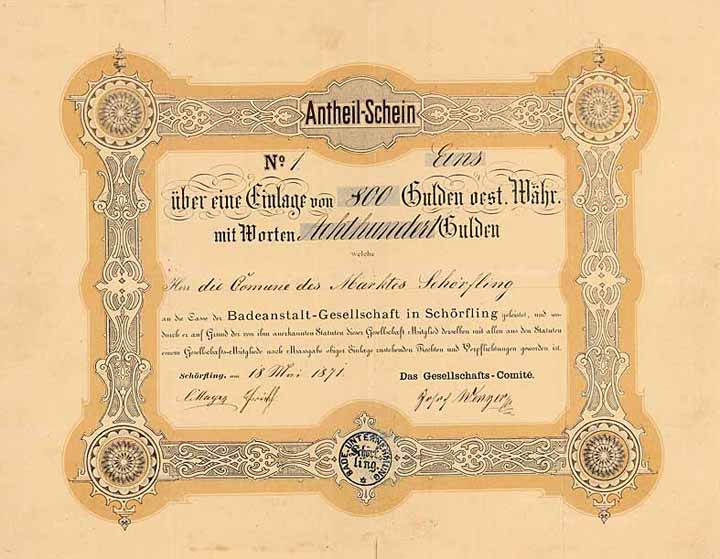 Antheil-Schein
No 1 Eins
über eine Einlage von 800 Gulden oest. Währ.
mit Worten Achthundert Gulden
welche
Herr die Comune des Marktes Schörfling
an die Casse der Badeanstalt-Gesellschaft in Schörfling geleistet, und wo-
durch er auf Grund der von ihm anerkannten Statuten dieser Gesellschaft Mitglied derselben mit allen aus den Statuten
einem Gesellschafts-Mitgliede nach Massgabe obiger Einlage zustehenden Rechten und Verpflichtungen geworden ist.
Schörfling, am 18 Mai 1871 Das Gesellschafts-Comité.
Josef
BADE-UNTERNEHMUNG
Schörf
ling.